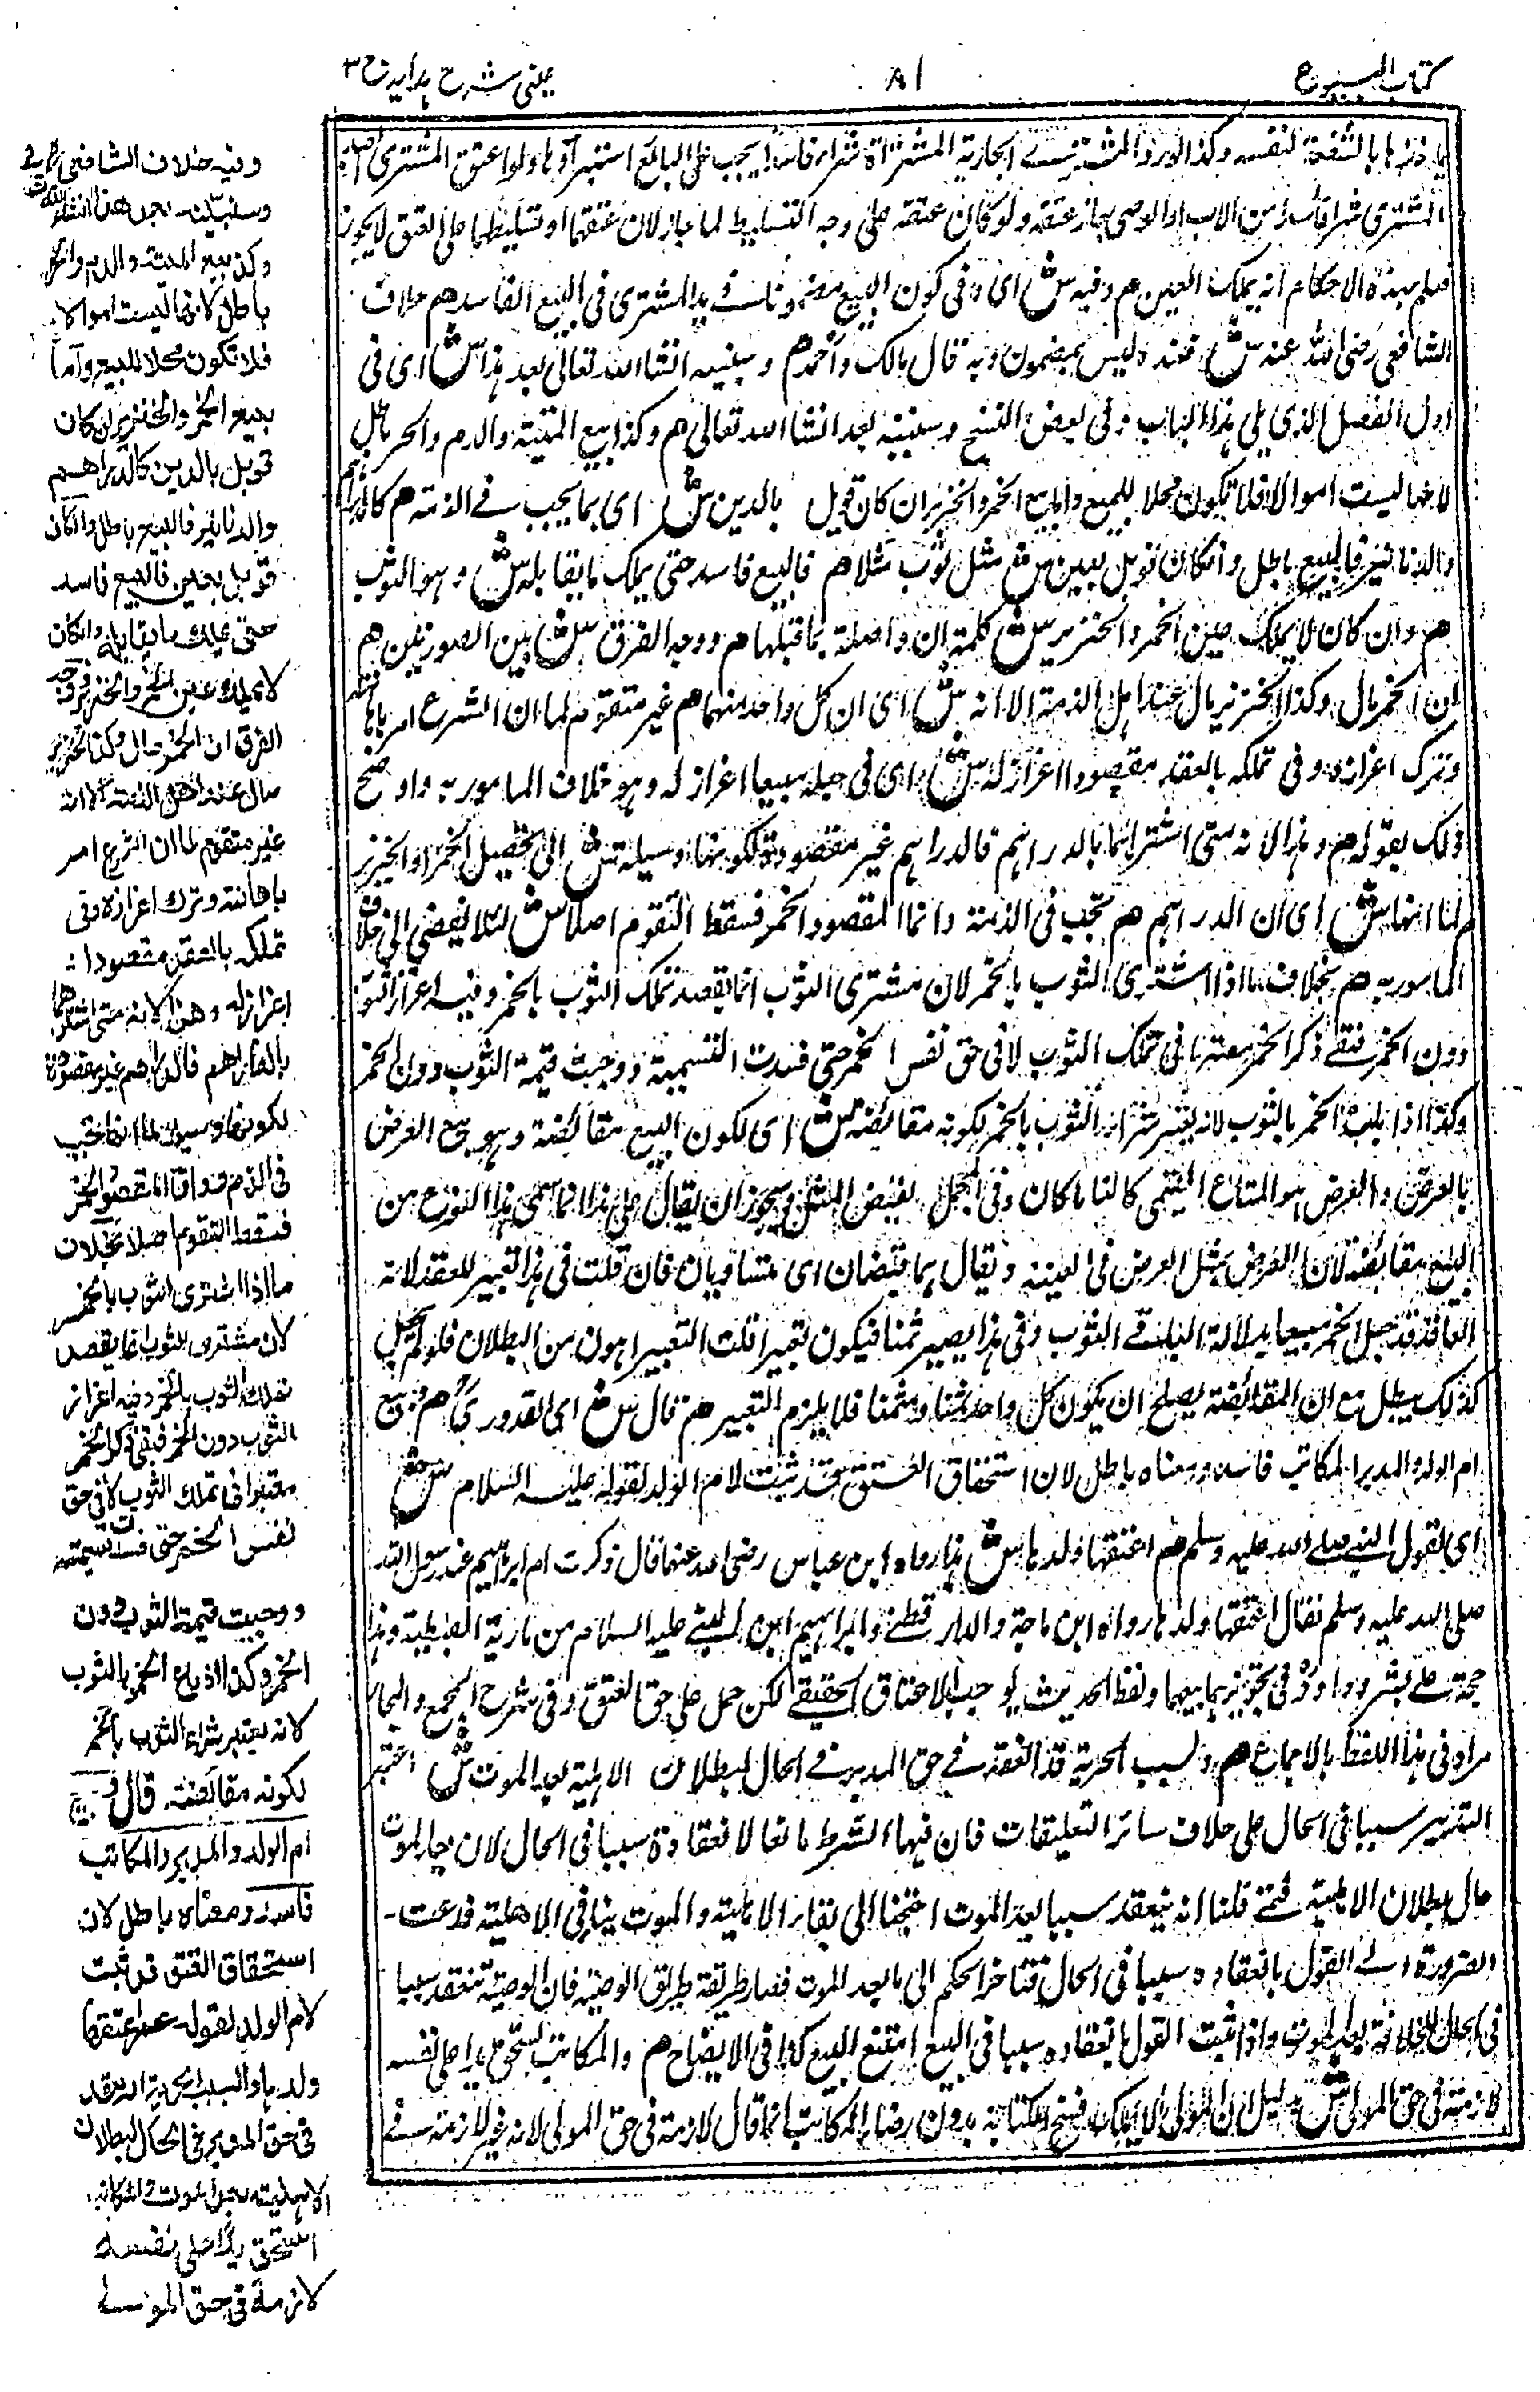 كتاب البيوع
٨١
عينى شرح هدايہ ج ٣
بالشفعة لنفسه وكذا لو رد المشترى الجارية المشتراة شراء فاسدا يجب على البائع استبراؤها ولو اعتق المشترى
المشترى شراء فاسدا من الاب او الوصى جاز عتقه ولو كان عتقه على وجه التسليط لما جاز لان عتقهما او تسليطهما على العتق لا يجوز
فعلم بهذه الاحكام انه يملك العين هم وفيه ش اى وفى كون المبيع مضمونا فى يد المشترى فى البيع الفاسد هم خلاف
الشافعى رضى الله عنه ش فعنده ليس بمضمون وبه قال مالك واحمد هم وسنبينه انشا الله تعالى بعد هذا ش اى فى
اول الفصل الذى يلى هذا الباب وفى بعض النسخ وسنبينه بعد انشا الله تعالى هم وكذا بيع الميتة والدم والحر باطل
لانها ليست اموالا فلا تكون محلا للبيع واما بيع الخمر والخنزير ان كان قوبل بالدين ش اى بما يجب فے الذمة هم كالدراهم
والدنانير فالبيع باطل وان كان قوبل بعين ش مثل ثوب مثلا هم فالبيع فاسد حتى يملك ما يقابله ش وهو الثوب
هم وان كان لا يملك عين الخمر والخنزير ش كلمة ان واصلة بما قبلها هم ووجه الفرق ش بين الصورتين هم
ان الخمر مال وكذا الخنزير مال عند اهل الذمة الا انه ش اى ان كل واحد منهما هم غير متقوم لما ان الشرع امر باهانته
وترك اعزازه وفى تملكه بالعقد مقصودا اعزاز له ش اى فى جعله مبيعا اعزاز له وهو خلاف المامور به واوضح
ذلك بقوله هم وهذا لانه متى اشتراهما بالدراهم فالدراهم غير مقصودة لكونها وسيلة ش الى تحصيل الخمر او الخنزير
هم لما انها ش اى ان الدراهم هم تجب فى الذمة وانما المقصود الخمر فسقط التقوم اصلا ش لئلا يفضى الى خلاف
المامور به هم بخلاف ما اذا اشترى الثوب بالخمر لان مشترى الثوب انما يقصد تملك الثوب بالخمر وفيه اعزاز الثوب
دون الخمر فبقى ذكر الخمر معتبرا فى تملك الثوب لا فى حق نفس الخمر حتى فسدت التسمية ووجبت قيمة الثوب دون الخمر
وكذا اذا باع الخمر بالثوب لانه يعتبر شراء الثوب بالخمر لكونه مقائضة ش اى لكون البيع مقائضة وهو بيع العرض
بالعرض والعرض هو المتاع القيمى كائنا ما كان وفى المجمل يفيض المثل ويجوز ان يقال على هذا انما سمى هذا النوع من
البيع مقائضة لان العرض مثل العرض فى العينية ويقال هما قيضان اى متساويان فان قلت فى هذا تغيير للعقد لانه
العاقد قد جعل الخمر مبيعا بدلالة الباء فے الثوب وفى هذا يصير ثمنا فيكون تغييرا قلت التغيير اهون من البطلان فلو لم يجعل
كذلك يبطل مع ان المقائضة يصلح ان يكون كل واحد ثمنا ومثمنا فلا يلزم التغيير هم قال ش اى القدورى هم وبيع
ام الولد والمدبر والمكاتب فاسد ومعناه باطل لان استحقاق العتق قد ثبت لام الولد لقوله عليه السلام ش
اى لقول النبى صلے الله عليه وسلم هم اعتقها ولدها ش هذا رواه ابن عباس رضى الله عنهما قال ذكرت ام ابراهيم عند رسول الله
صلى الله عليه وسلم فقال اعتقها ولدها رواه ابن ماجة والدار قطنے وابراهيم ابن النبے عليه السلام من مارية القبطية وهذا
حجة على بشر وداود فى تجويزهما بيعها ولفظ الحديث يوجب الاعتاق الحقيقے لكن حمل على حق العتق وفى شرح المجمع والمجاز
مراد فى هذا اللفظ بالاجماع هم وسبب الحرية قد انعقد فے حق المدبر فے الحال لبطلان الاهلية بعد الموت ش اعتبر
التدبير سببا فى الحال على خلاف سائر التعليقات فان فيها الشرط مانعا لانعقاده سببا فى الحال لان حال الموت
حال بطلان الاهلية فمتے قلنا انه ينعقد سببا بعد الموت احتجنا الى بقاء الاهلية والموت ينافى الاهلية فدعت
الضرورة الے القول بانعقاده سببا فى الحال فتاخر الحكم الى ما بعد الموت فصار طريقه طريق الوصية فان الوصية تنعقد سببا
فى الحال للخلافة بعد الموت واذا ثبت القول بانعقاده سببا فى البيع امتنع البيع كذا فى الايضاح هم والمكاتب استحق يدا على نفسه
لازمة فى حق المولى ش بدليل ان المولى لا يملك فسخ الكتابة بدون رضاء المكاتب انما قال لازمة فى حق المولى لانه غير لازمة فے
وفيه خلاف الشافعى
وسنبينه بعد هذا انشاء الله تعالى
وكذا بيع الميتة والدم والحر
باطل لانها ليست اموالا
فلا تكون محلا للبيع واما
بيع الخمر والخنزير ان كان
قوبل بالدين كالدراهم
والدنانير فالبيع باطل وان كان
قوبل بعين فالبيع فاسد
حتى يملك ما يقابله وان كان
لا يملك عين الخمر والخنزير ووجه
الفرق ان الخمر مال وكذا الخنزير
مال عند اهل الذمة الا انه
غير متقوم لما ان الشرع امر
باهانته وترك اعزازه وفى
تملكه بالعقد مقصودا
اعزاز له وهذا لانه متى اشتراهما
بالدراهم فالدراهم غير مقصودة
لكونها وسيلة لما انها تجب
فى الذمة وانما المقصود الخمر
فسقط التقوم اصلا بخلاف
ما اذا اشترى الثوب بالخمر
لان مشترى الثوب انما يقصد
تملك الثوب بالخمر وفيه اعزاز
الثوب دون الخمر فبقى ذكر الخمر
معتبرا فى تملك الثوب لا فى حق
نفس الخمر حتى فسدت التسمية
ووجبت قيمة الثوب دون
الخمر وكذا اذا باع الخمر بالثوب
لانه يعتبر شراء الثوب بالخمر
لكونه مقائضة قال وبيع
ام الولد والمدبر والمكاتب
فاسد ومعناه باطل لان
استحقاق العتق قد ثبت
لام الولد لقوله عم اعتقها
ولدها والسبب الحرية انعقد
فى حق المدبر فى الحال لبطلان
الاهلية بعد الموت والمكاتب
استحق يدا على نفسه
لازمة فى حق المولے